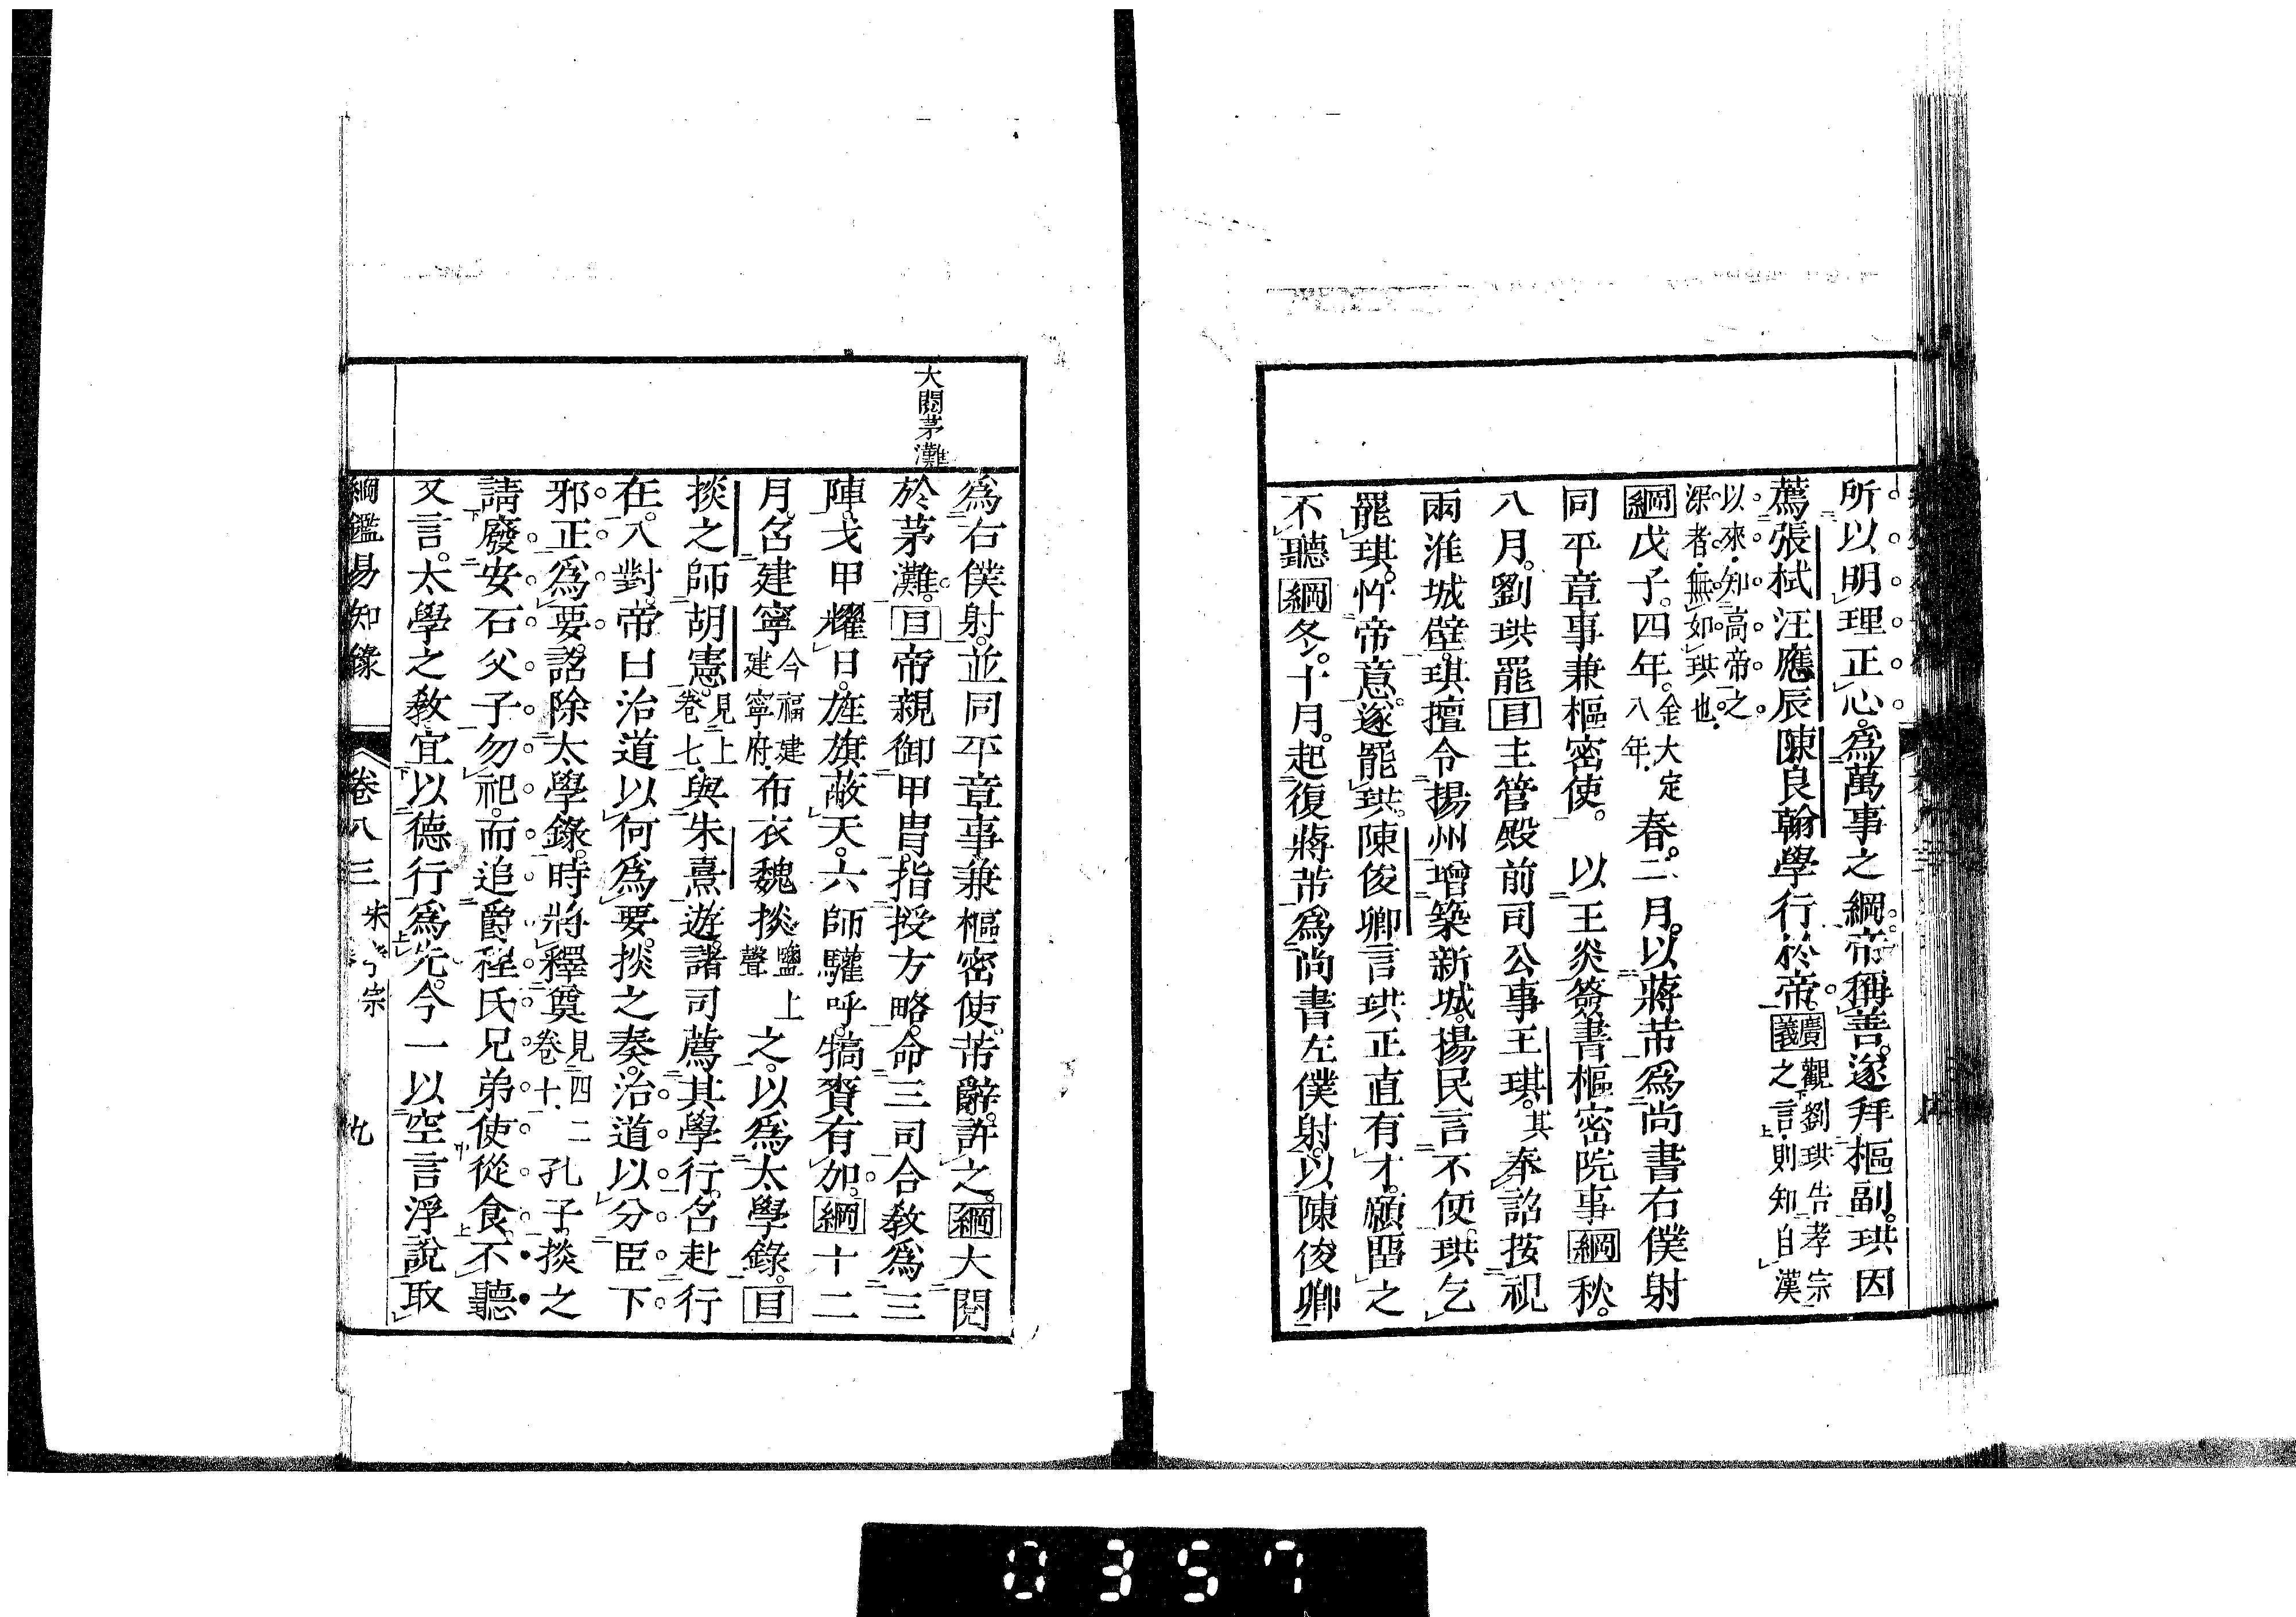 所以明理正心。爲萬事之綱。帝稱善。遂拜樞副。珙因
薦張栻汪應辰陳良翰學行於帝。廣義觀劉珙告孝宗之言則知自漢
以來知高帝之深者無如珙也
綱戊子。四年。金大定八年春。二月。以蔣芾爲尚書右僕射
同平章事兼樞密使。以王炎簽書樞密院事綱秋。
八月。劉珙罷目主管殿前司公事王琪。其奉詔按視
兩淮城壁。琪擅令揚州增築新城。揚民言不便。珙乞
罷琪。忤帝意。遂罷珙。陳俊卿言珙正直有才。願畱之
不聽綱冬。十月。起復蔣芾爲尚書左僕射。以陳俊卿
大閱茅灘
爲右僕射。並同平章事兼樞密使。芾辭。許之。綱大閱
於茅灘。目帝親御甲冑。指授方略。命三司合敎爲三
陣。戈甲耀日。旌旗蔽天。六師驩呼。犒賚有加。綱十二
月。召建寧今福建建寧府布衣魏掞鹽上聲之。以爲太學錄。目
掞之師胡憲。見上卷七與朱熹遊。諸司薦其學行。召赴行
在。入對。帝曰治道以何爲要。掞之奏。治道以分臣下
邪正爲要。詔除太學錄。時將釋奠見四二卷十孔子。掞之
請廢安石父子勿祀。而追爵程氏兄弟使從食。不聽
又言。太學之敎宜以德行爲先。今一以空言浮說取
綱鑑易知錄 卷八三 宗 九
0357